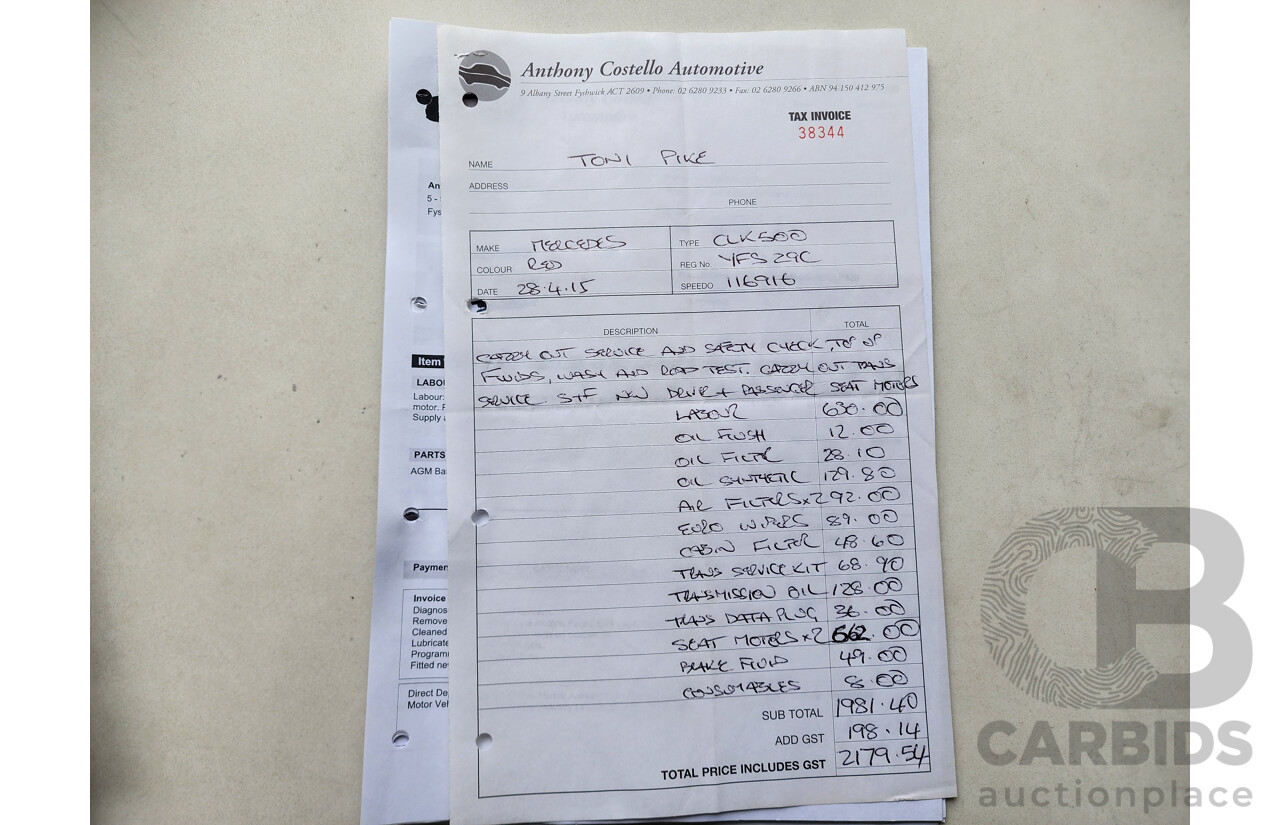 Anthony Costello Automotive
9 Albany Street Fyshwick ACT 2609 • Phone: 02 6280 9233 • Fax: 02 6280 9266 • ABN 94 150 412 975
TAX INVOICE
38344
NAME TONI PIKE
ADDRESS
PHONE
MAKE MERCEDES TYPE CLK500
COLOUR RED REG No. YFS 29C
DATE 28.4.15 SPEEDO 116916
DESCRIPTION TOTAL
CARRY OUT SERVICE AND SAFETY CHECK, TOP UP
FLUIDS, WASH AND ROAD TEST. CARRY OUT TRANS
SERVICE. S+F NEW DRIVER + PASSENGER SEAT MOTORS
LABOUR 630.00
OIL FLUSH 12.00
OIL FILTER 28.10
OIL SYNTHETIC 129.80
AIR FILTERS x2 92.00
EURO WIPERS 89.00
CABIN FILTER 48.60
TRANS SERVICE KIT 68.90
TRANSMISSION OIL 128.00
TRANS DATA PLUG 36.00
SEAT MOTORS x2 662.00
BRAKE FLUID 49.00
CONSUMABLES 8.00
SUB TOTAL 1981.40
ADD GST 198.14
TOTAL PRICE INCLUDES GST 2179.54
An
5 -
Fys
Item
LABOU
Labour:
motor. F
Supply
PARTS
AGM Ba
Paymen
Invoice
Diagnos
Remove
Cleaned
Lubricate
Program
Fitted ne
Direct De
Motor Veh
CARBIDS
auctionplace